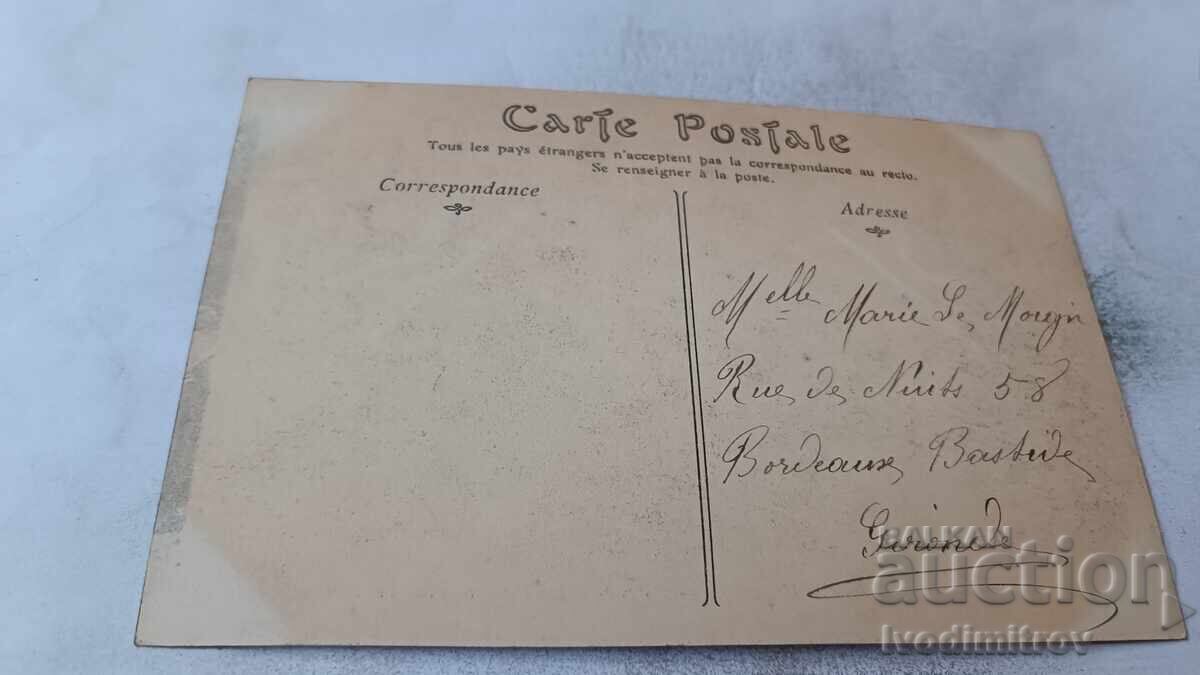 Carte Postale
Tous les pays étrangers n'acceptent pas la correspondance au recto.
Se renseigner à la poste.
Correspondance
Adresse
Melle Marie Le
Rue de Nuits 58
Bordeaux Bastide
Gironde
BALKAN
auction
Ivodimitrov